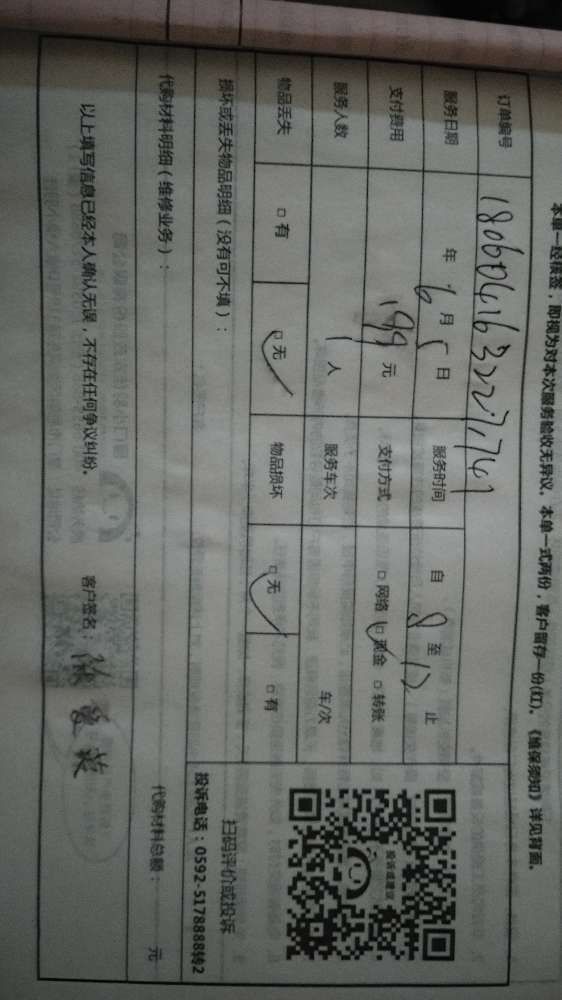 本单一经核签，即视为对本次服务验收无异议。本单一式两份，客户留存一份(红)。《维保须知》详见背面。
订单编号
服务日期 年 6 月 5 日 服务时间 自 8 至 12 止
支付费用 199 元 支付方式 □ 网络 □ 现金 □ 转账
服务人数 1 人 服务车次 车/次
物品丢失 □ 有 □ 无 物品损坏 □ 无 □ 有
投诉或建议
扫码评价或投诉
投诉电话：0592-5178888转2
损坏或丢失物品明细（没有可不填）：
代购材料明细（维修业务）： 代购材料总额： 元
以上填写信息已经本人确认无误，不存在任何争议纠纷。 客户签名：